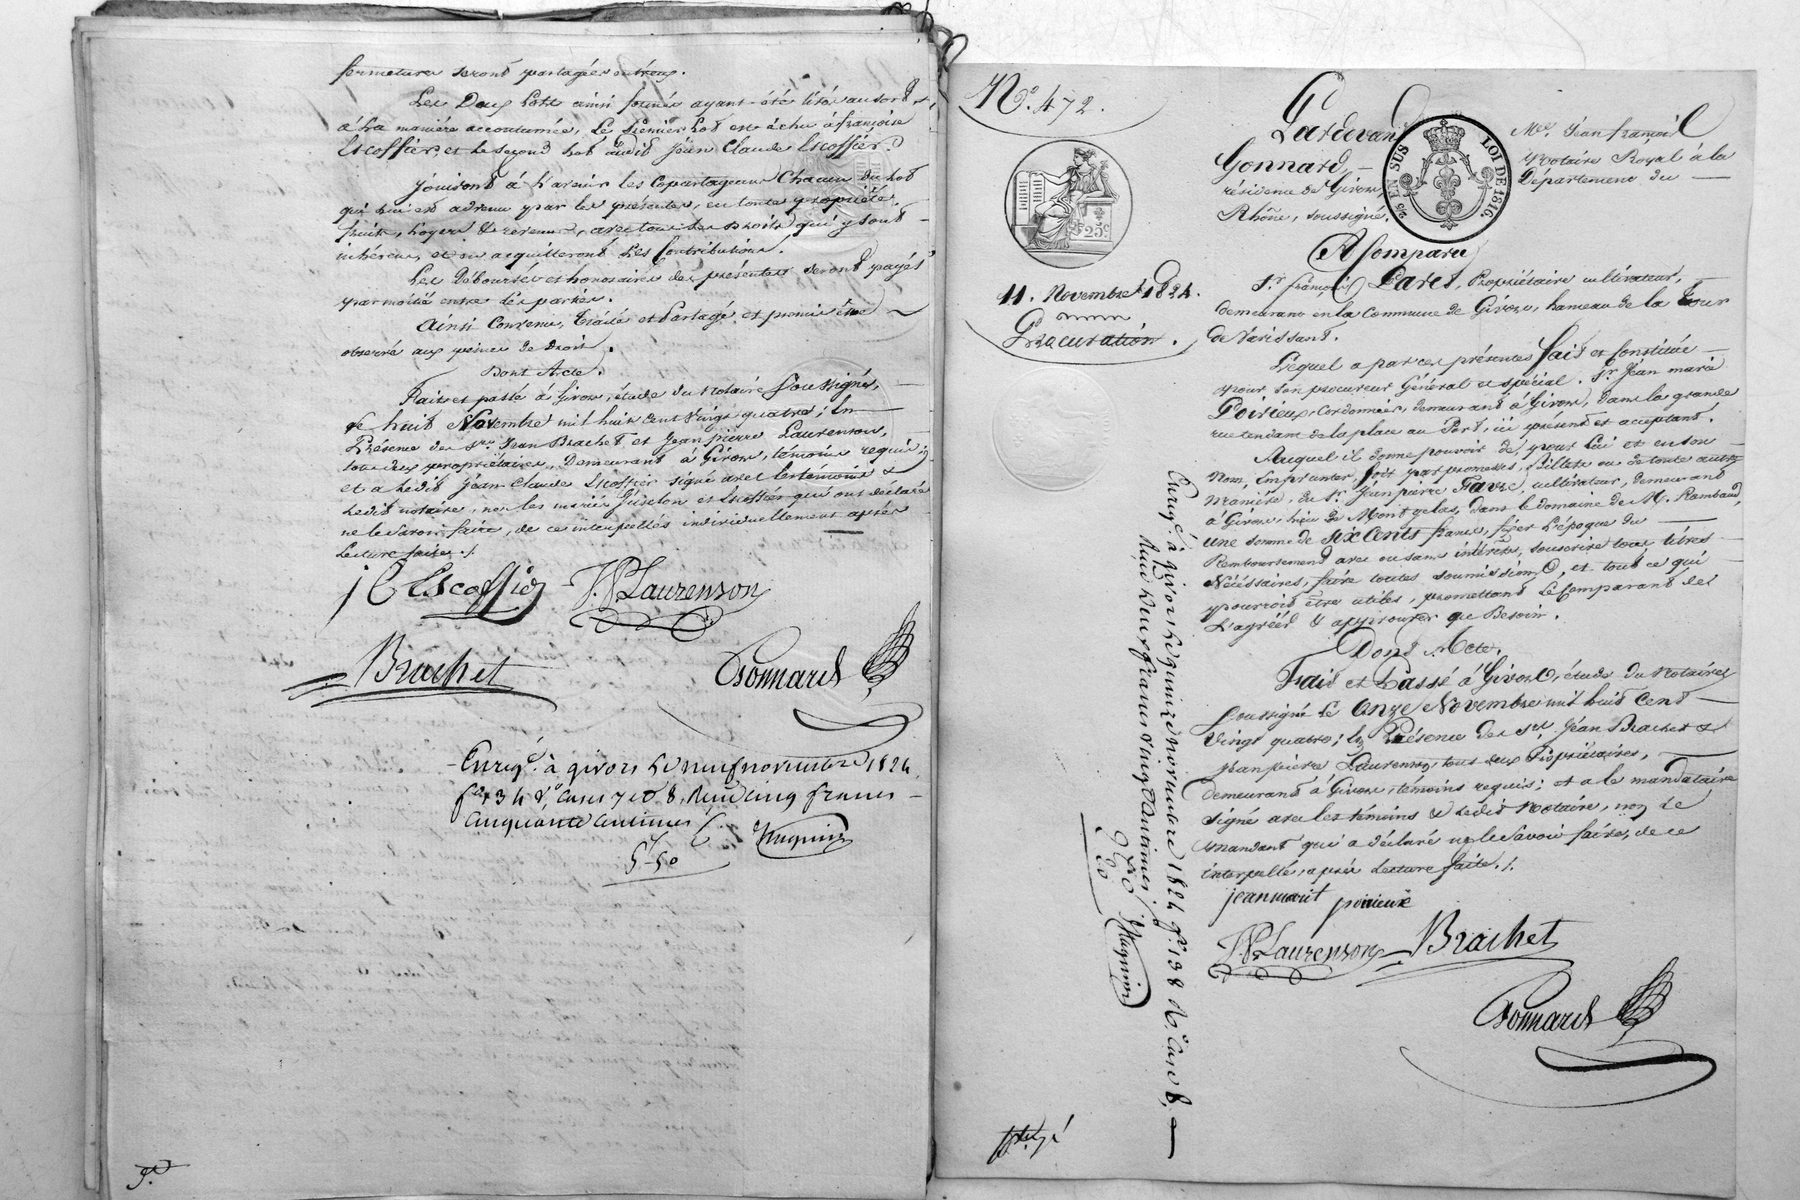 fermeture seront partagées entr'eux.
Les Deux Lots ainsi formés ayant été tirés au sort
à La manière accoutumée, Le Premier Lot est échu à françoise
Escoffier, et Le Second Lot audit Jean Claude Escoffier.
Jouiront à L'avenir les Copartageans Chacun du Lot
qui lui est advenu par les présentes, en toute propriété,
fruits, Loyers & revenus, avec tous les Droits qui y sont
inhérens, et en acquitteront Les Contributions.
Les Déboursés et honoraires des présentes seront payés
par moitié entre Les parties.
Ainsi Convenu, Traité et Partagé, et promis être
observé aux peines de Droit.
Dont Acte.
Fait et passé à Givors, étude du Notaire Soussigné,
Le huit Novembre mil huit cent vingt quatre; En
Présence des Srs. Jean Brachet et Jean pierre Laurenson,
tous deux propriétaires, Demeurant à Givors, témoins requis;
et a Ledit Jean Claude Escoffier signé avec Les témoins &
Ledit notaire, non les mariés et Escoffier qui ont déclaré
ne le savoir faire, de ce interpellés individuellement après
Lecture faite ./.
J C Escoffier J.P Laurenson
Brachet Gonnard
Enregé. à givors le neuf novembre 1824
fo. 134 Vo. Cases 7 et 8, Reçu cinq francs
cinquante centimes
5-50
No. 472.
11. Novembre 1824.
Procuration.
25c
25 EN SUS LOI DE 1816.
Pardevant Me. Jean françois
Gonnard Notaire Royal à la
résidence de Givors Département du
Rhône, soussigné,
A Comparu
Sr. françois Paret, Propriétaire cultivateur,
demeurant en la Commune de Givors, hameau de la Tour
de Varissant.
Lequel a par ces présentes fait et Constitué
pour son procureur Général et spécial. Sr. Jean marie
Poirieux, Cordonnier, demeurant à Givors, dans la grande
rue tendant de la place au Port, ici présent et acceptant.
Auquel il donne pouvoir de, pour Lui et en son
Nom, Emprunter, soit par promesses, Billets ou de toute autre
manière, de Sr. Jean pierre Favre, cultivateur, demeurant
à Givors, lieu de Montgelas, dans le domaine de M. Rambaud,
une somme de six Cents francs, fixer L'époque du
Remboursement avec ou sans intérêts, souscrire tous titres
Nécessaires, faire toutes soumissions, et tout ce qui
pourroit être utiles, promettant Le Comparant de
L'agréer & approuver au Besoin.
Dont Acte.
Fait et Passé à Givors, étude du Notaire
soussigné Le Onze Novembre mil huit Cent
vingt quatre; En Présence des Srs. Jean Brachet &
Jean pierre Laurenson, tous deux Propriétaires,
demeurant à Givors, témoins requis; et a le mandataire
signé avec Les témoins & Ledit Notaire, non Le
mandant qui a déclaré ne le Savoir faire, de ce
interpellé, après Lecture faite ./.
jean marie poirieux
J.P Laurenson Brachet
Gonnard
Enregé. à givors le quinze novembre 1824 fo. 138 Ro. Case 8,
Reçu deux francs vingt centimes